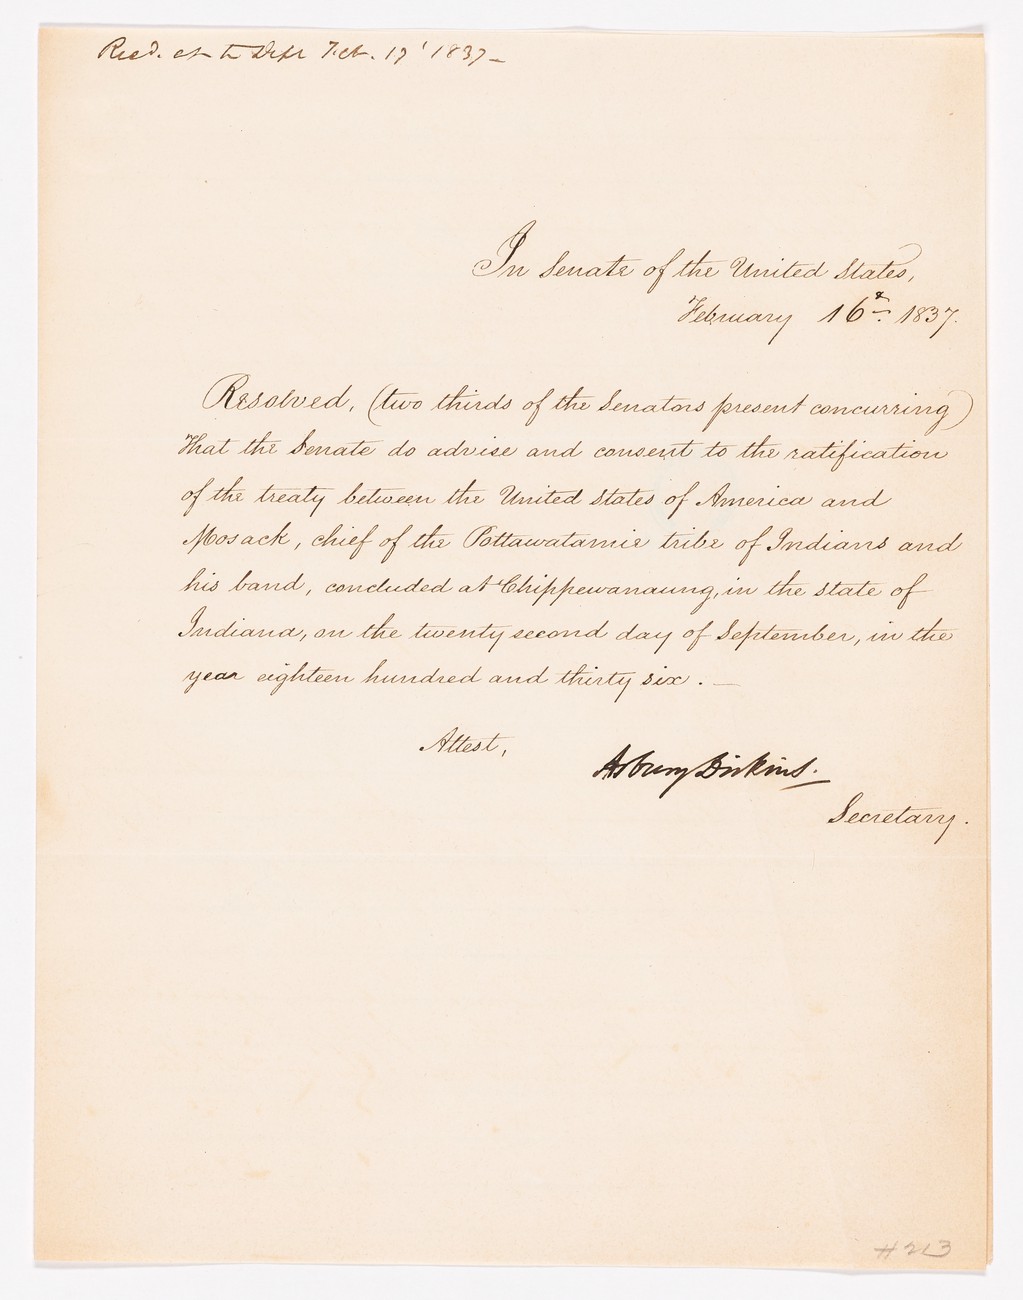 Recd. at the Dept Feb. 17 1837 –
In Senate of the United States,
February 16th. 1837.
Resolved, (two thirds of the Senators present concurring)
That the Senate do advise and consent to the ratification
of the treaty between the United States of America and
Mosack, chief of the Pottawatamie tribe of Indians and
his band, concluded at Chippewanaung, in the state of
Indiana, on the twenty second day of September, in the
year eighteen hundred and thirty six. —
Attest,
Asbury Dickins.
Secretary.
#213